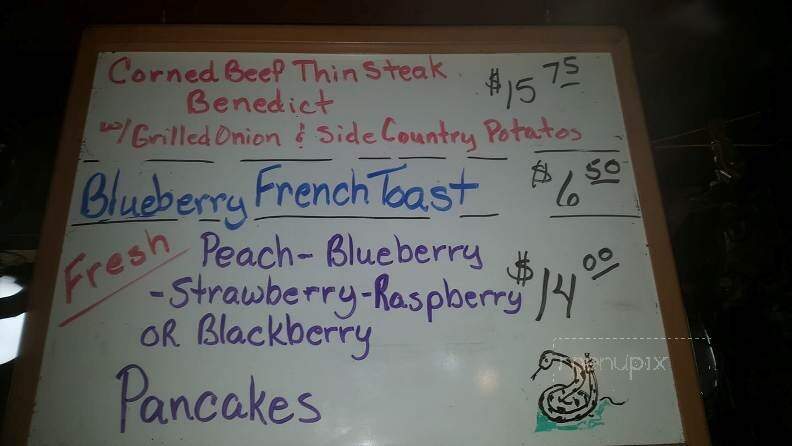 Corned Beef Thin Steak $15 75
Benedict
w/ Grilled Onion & Side Country Potatos
Blueberry French Toast $6 50
Fresh Peach- Blueberry
-Strawberry-Raspberry $14 00
OR Blackberry
menupix
Pancakes